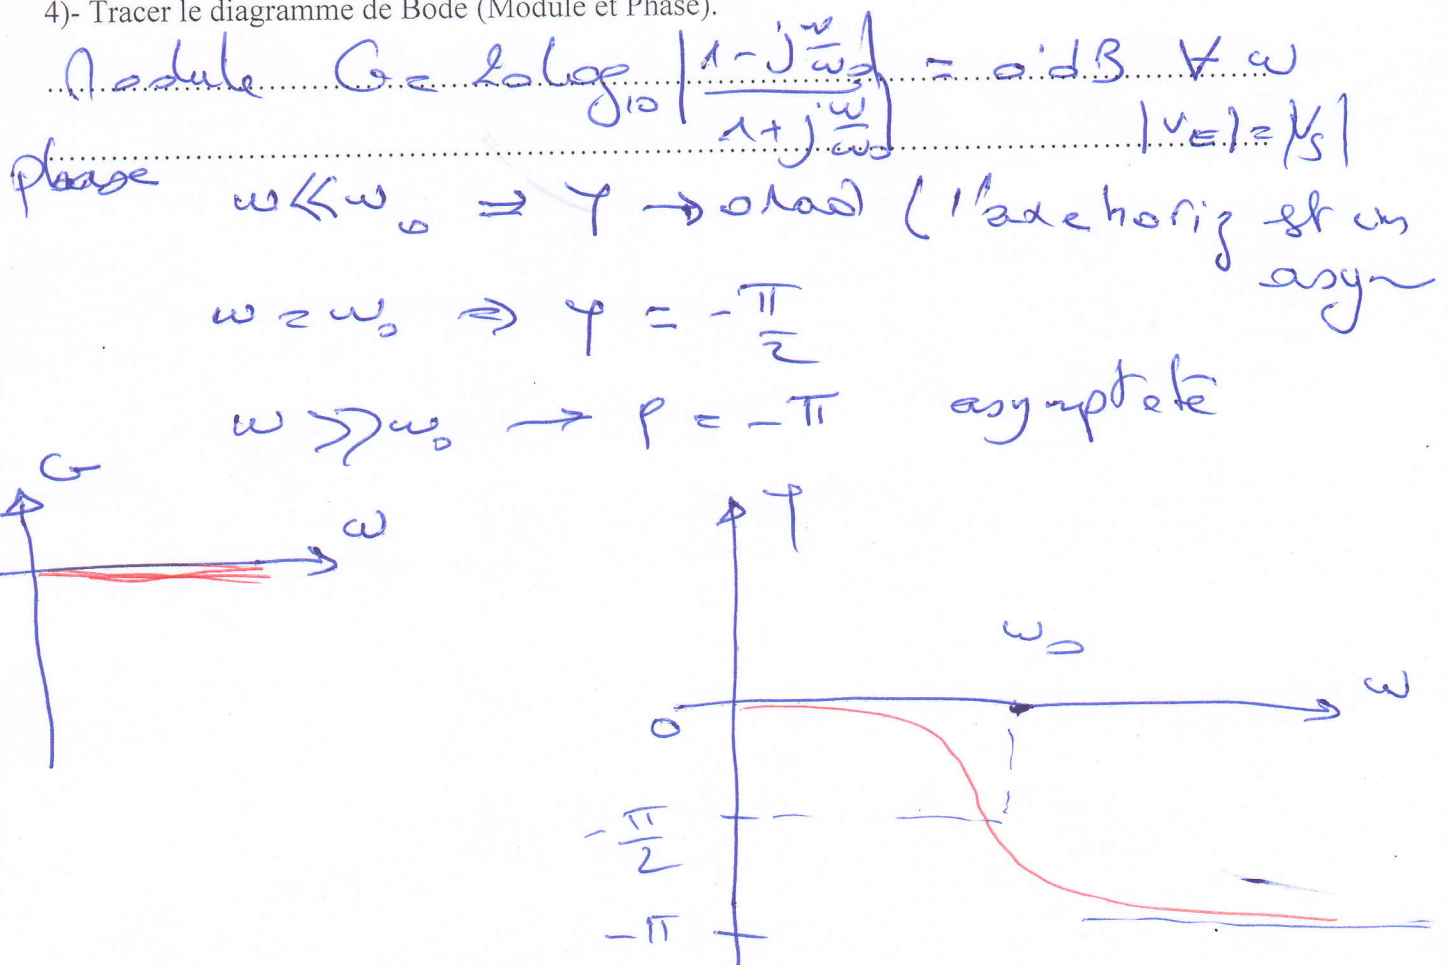 4)- Tracer le diagramme de Bode (Module et Phase).
Module G = 20 log₁₀ |(1 - j ω/ω₀) / (1 + j ω/ω₀)| = 0 dB ∀ ω
|V_E| = |V_S|
phase ω ≪ ω₀ ⇒ φ → 0 rad (l'axe horiz est un
asym
ω = ω₀ ⇒ φ = - π/2
ω ≫ ω₀ → φ = - π asymptote
G
ω
φ
ω₀
ω
0
- π/2
- π